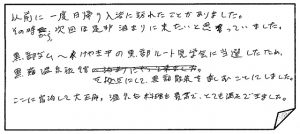 以前に一度日帰り入浴に訪れたことがありました。
その時から、次回は是非泊まりに来たいと思っていました。
黒部ダム〜欅平の黒部ルート見学会に当選したため、
黒薙温泉旅館
を拠点にして、黒部観光を楽しむことにしました。
ここに宿泊して大正解。温泉もお料理も最高で、とても満足できました。